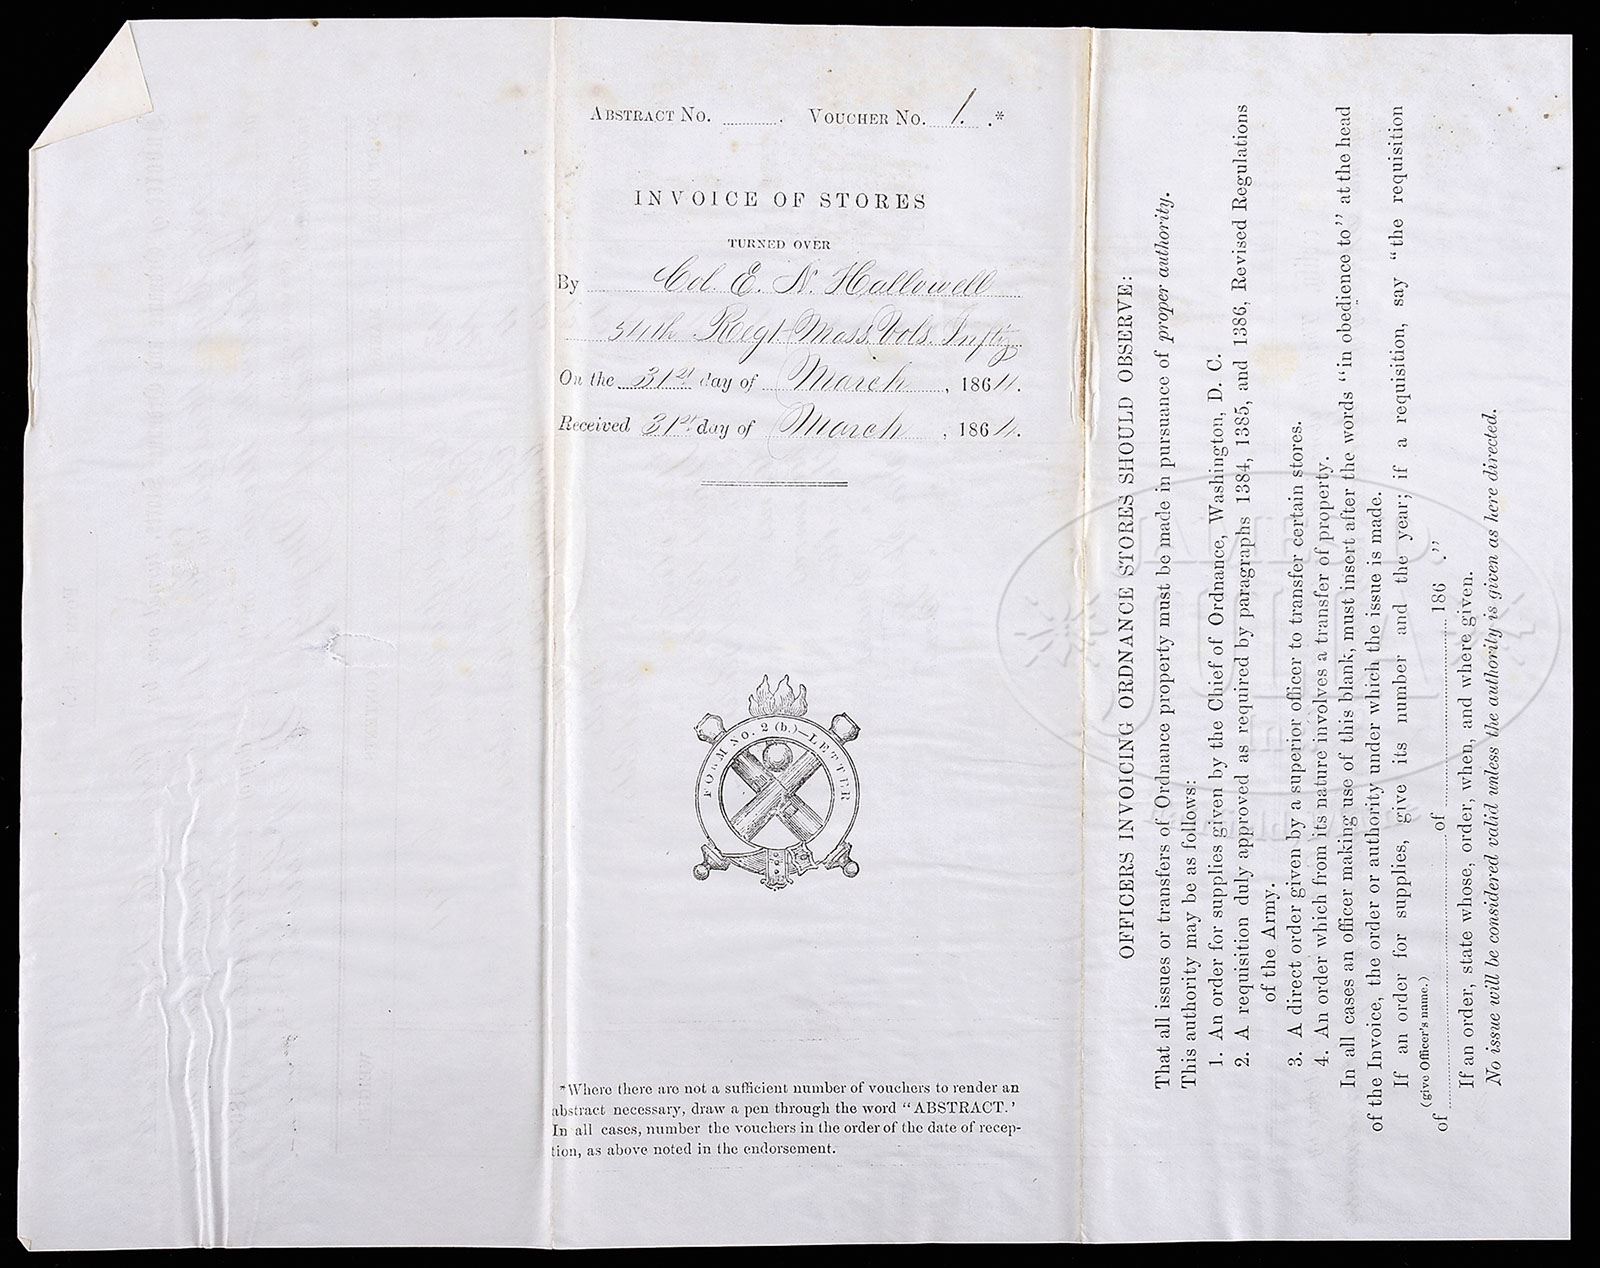 ABSTRACT NO. ........... . VOUCHER NO. 1. .*
INVOICE OF STORES
TURNED OVER
By Col. E. N. Hallowell
54th Regt Mass. Vols. Infty
On the 31st day of March, 1864.
Received 31st day of March, 1864.
FORM NO. 2 (b.)—LETTER
*Where there are not a sufficient number of vouchers to render an
abstract necessary, draw a pen through the word "ABSTRACT.'
In all cases, number the vouchers in the order of the date of recep-
tion, as above noted in the endorsement.
OFFICERS INVOICING ORDNANCE STORES SHOULD OBSERVE:
That all issues or transfers of Ordnance property must be made in pursuance of proper authority.
This authority may be as follows:
1. An order for supplies given by the Chief of Ordnance, Washington, D. C.
2. A requisition duly approved as required by paragraphs 1384, 1385, and 1386, Revised Regulations
of the Army.
3. A direct order given by a superior officer to transfer certain stores.
4. An order which from its nature involves a transfer of property.
In all cases an officer making use of this blank, must insert after the words "in obedience to" at the head
of the Invoice, the order or authority under which the issue is made.
If an order for supplies, give its number and the year; if a requisition, say "the requisition
(give Officer's name.)
of ........................ of ........................ 186 ."
If an order, state whose, order, when, and where given.
No issue will be considered valid unless the authority is given as here directed.